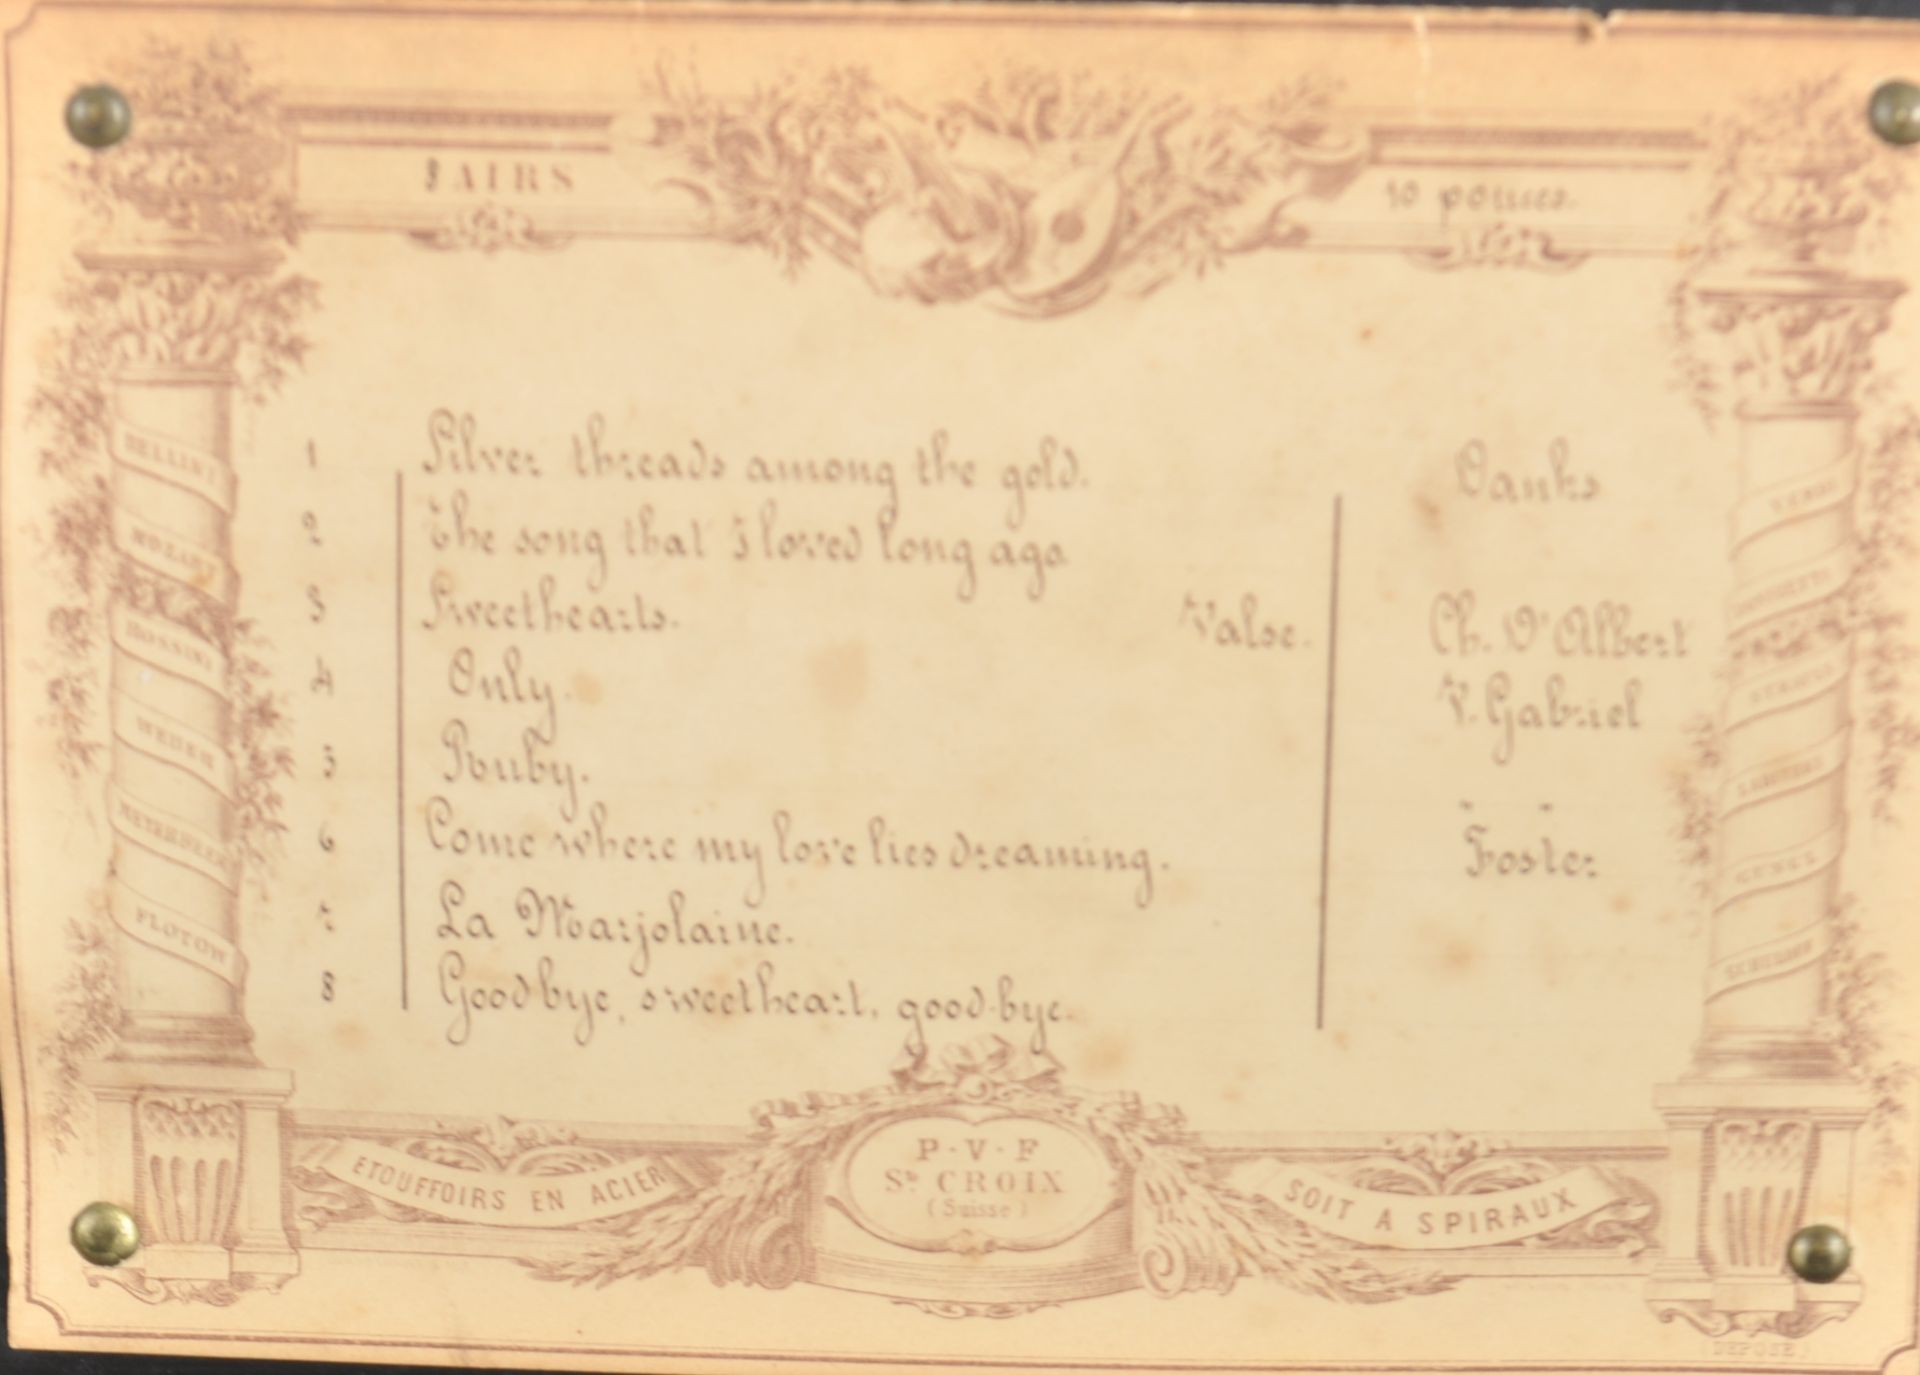 8 AIRS
10 pouces.
1 Silver threads among the gold. Danks
2 The song that I loved long ago
3 Sweethearts. Valse. Ch. D'Albert
4 Only. V. Gabriel
5 Ruby. " "
6 Come where my love lies dreaming. Foster
7 La Marjolaine.
8 Good bye, sweetheart, good-bye.
BELLINI
MOZART
ROSSINI
WEBER
MEYERBEER
FLOTOW
VERDI
DONIZETTI
STRAUSS
GUNGL
ETOUFFOIRS EN ACIER
P·V·F
Ste CROIX
(Suisse)
SOIT A SPIRAUX
(DEPOSE.)